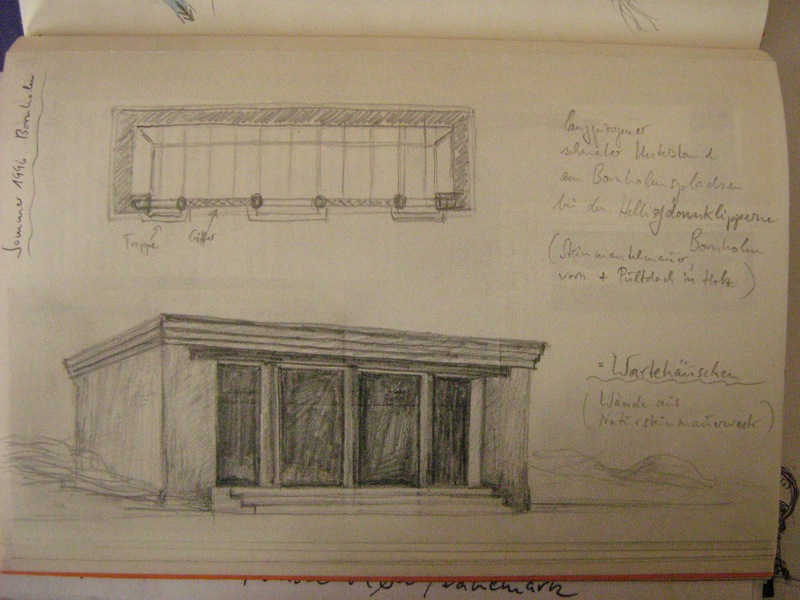 Sommer 1996 Bornholm
langgezogener
schmaler Unterstand
am Bornholmerpladsen
bei den Helligdomsklipperne
Bornholm
(Steinmantelmauer,
vorn + Pultdach in Holz)
Treppe
Gitter
= Wartehäuschen
(Wände aus
Natursteinmauerwerk)
Dänemark